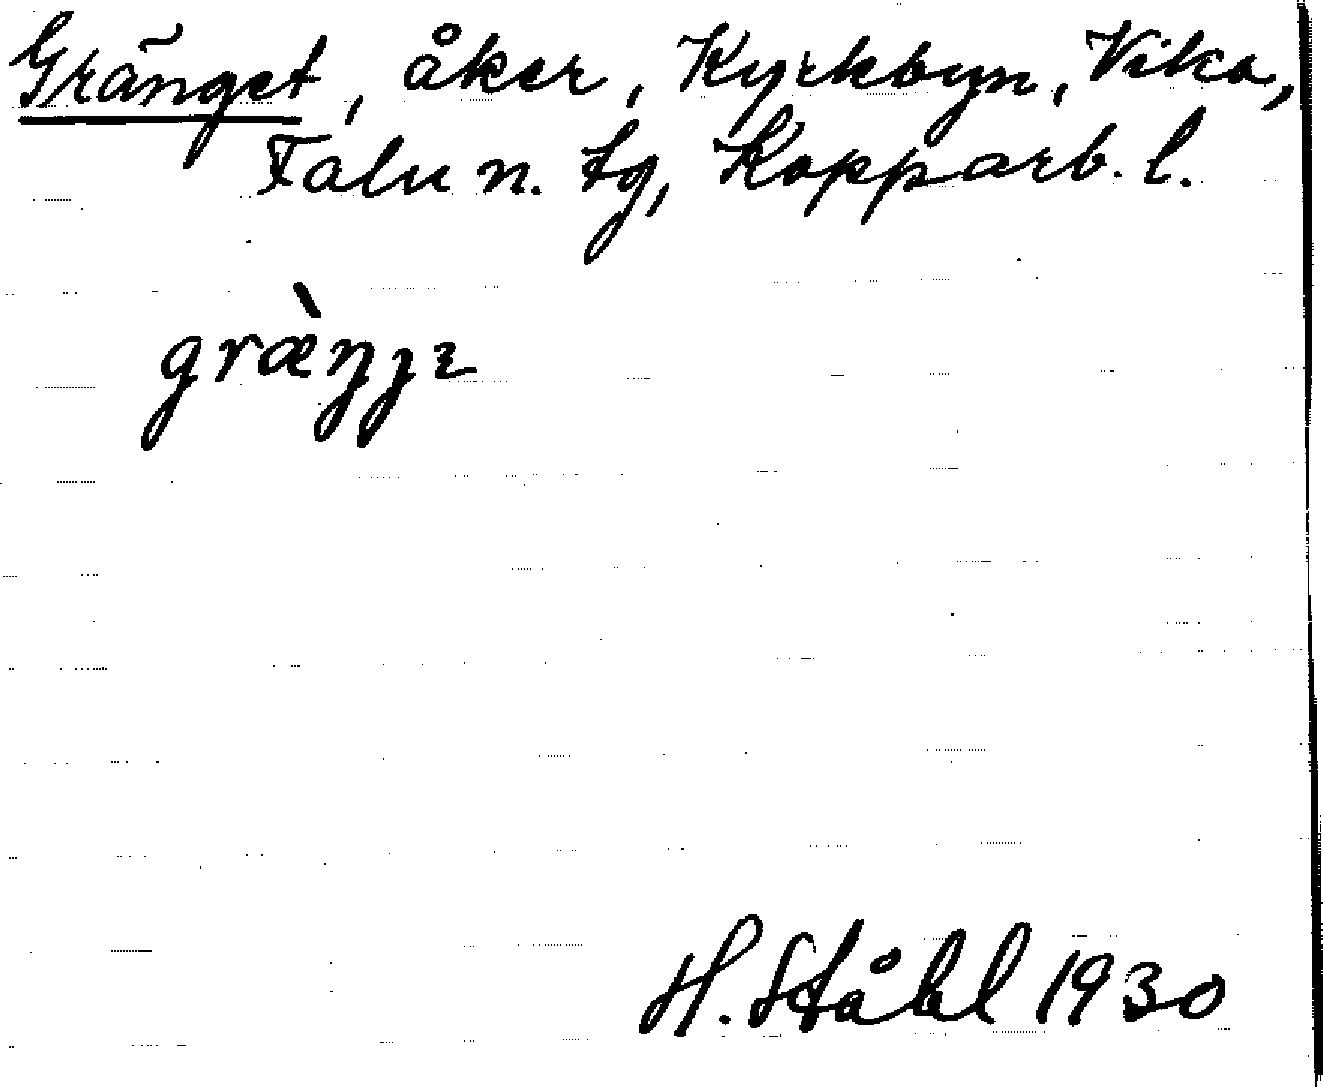 Gränget, åker, Kyrkbyn, Vika,
Falu n. tg, Kopparb. l.
græ̀ŋɟɛ
H. Ståhl 1930